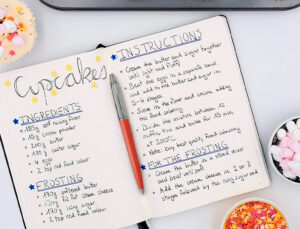 Cupcakes
INGREDIENTS
180g self raising flour
15g cocoa powder
200g butter
170g caster sugar
eggs
2 tsp red food colour
FROSTING
170g softened butter
full fat cream cheese
170g icing sugar
2 tsp red food colour
INSTRUCTIONS
Cream the butter and sugar together
until light and fluffy
Beat the eggs in a separate bowl
and add to the butter and sugar in
stages
Sieve in the flour and cocoa adding
the food colouring
Divide the mixture between 12
muffin tins and bake for 15 min
at 200°C
Make
FOR THE FROSTING
Cream the butter in a stand mixer
and beat until soft
Add the cream cheese in 2 or 3
stages followed by the icing sugar and